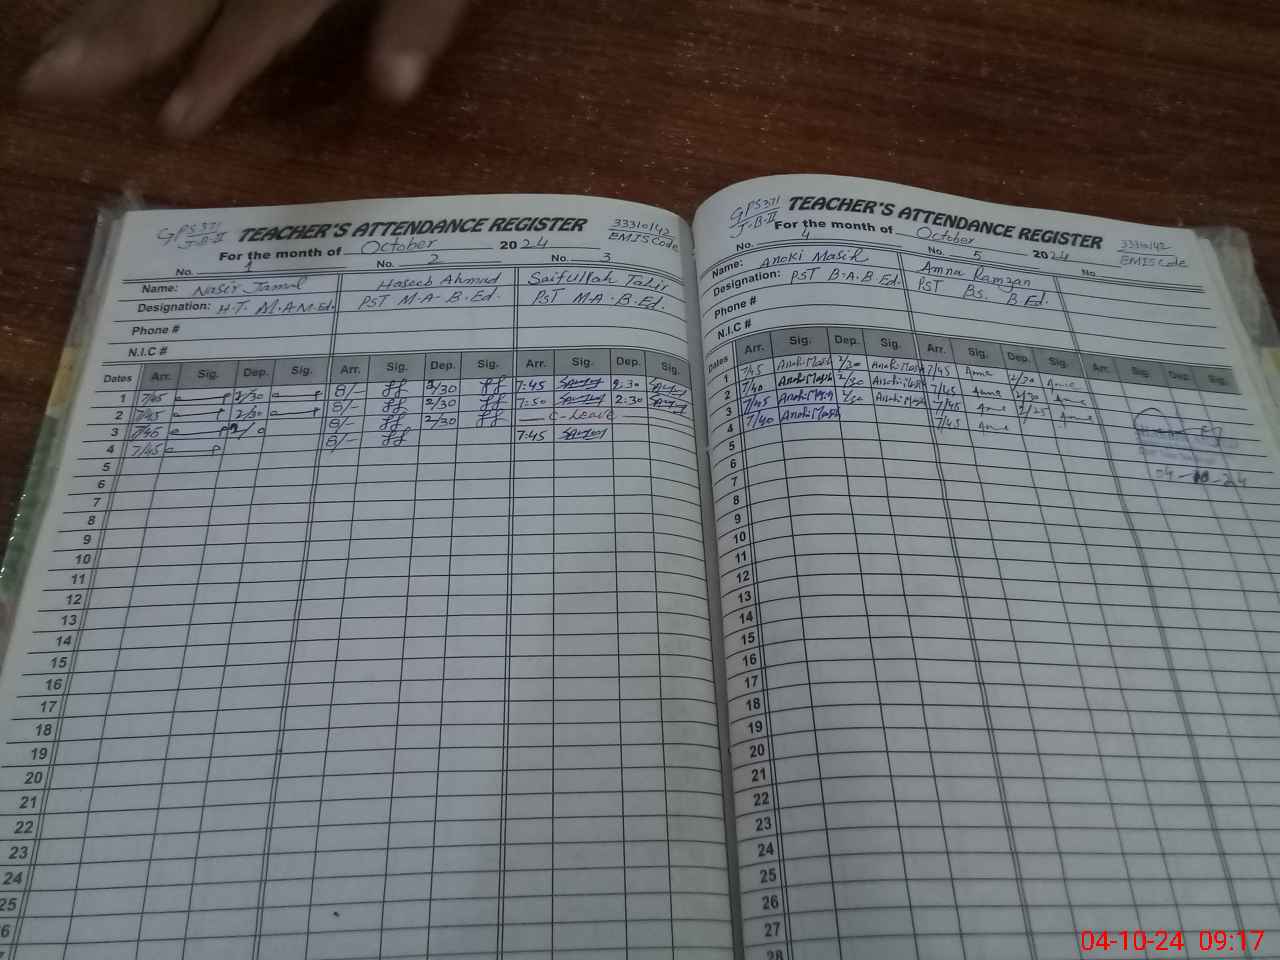 GPS 371
J-B-II
TEACHER'S ATTENDANCE REGISTER
33310142
EMIS Code
For the month of October 2024
No. 1 No. 2 No. 3
Name: Nasir Jamil Haseeb Ahmad Saifullah Tahir
Designation: H.T. M.A M.Ed. PST M-A- B-Ed. PST M.A. B.Ed.
Phone #
N.I.C #
Dates Arr. Sig. Dep. Sig. Arr. Sig. Dep. Sig. Arr. Sig. Dep. Sig.
1 7/45 2/30 8/- 2/30 7:45 2:30
2 7/45 2/30 8/- 2/30 7:50 2:30
3 7/45 8/- 2/30 C-Leave
4 7/45 8/- 7:45
5
6
7
8
9
10
11
12
13
14
15
16
17
18
19
20
21
22
23
24
25
GPS 371
J-B-II
TEACHER'S ATTENDANCE REGISTER
33310142
EMIS Code
For the month of October 2024
No. 4 No. 5 No.
Name: Anoki Masih Amna Ramzan
Designation: PST B.A. B.Ed. PST Bs. B.Ed.
Phone #
N.I.C #
Dates Arr. Sig. Dep. Sig. Arr. Sig. Dep. Sig. Arr. Sig. Dep. Sig.
1 7/45 Anoki Masih 2/30 Anoki Masih 7/45 2/30
2 7/40 Anoki Masih 2/30 Anoki Masih 7/45 2/30
3 7/45 Anoki Masih 2/30 Anoki Masih 7/45 2/25
4 7/40 Anoki Masih 7/45
5
6
7
04-10-24
8
9
10
11
12
13
14
15
16
17
18
19
20
21
22
23
24
25
26
27
28
04-10-24 09:17